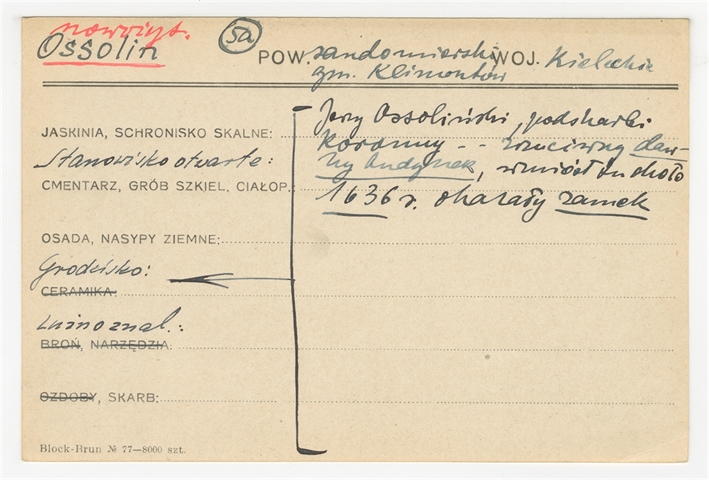 nowożyt.
Ossolin
5a
POW. sandomierski WOJ. Kieleckie
gm. Klimontów
Jerzy Ossoliński, podskarbi
JASKINIA, SCHRONISKO SKALNE: Koronny - - zrzuciwszy daw-
Stanowisko otwarte: ny budynek, wzniósł tu około
CMENTARZ, GRÓB SZKIEL, CIAŁOP.: 1636 r. okazały zamek
OSADA, NASYPY ZIEMNE:
Grodzisko:
CERAMIKA:
Luźno znal.:
BROŃ, NARZĘDZIA:
OZDOBY, SKARB:
Block-Brun № 77—8000 szt.